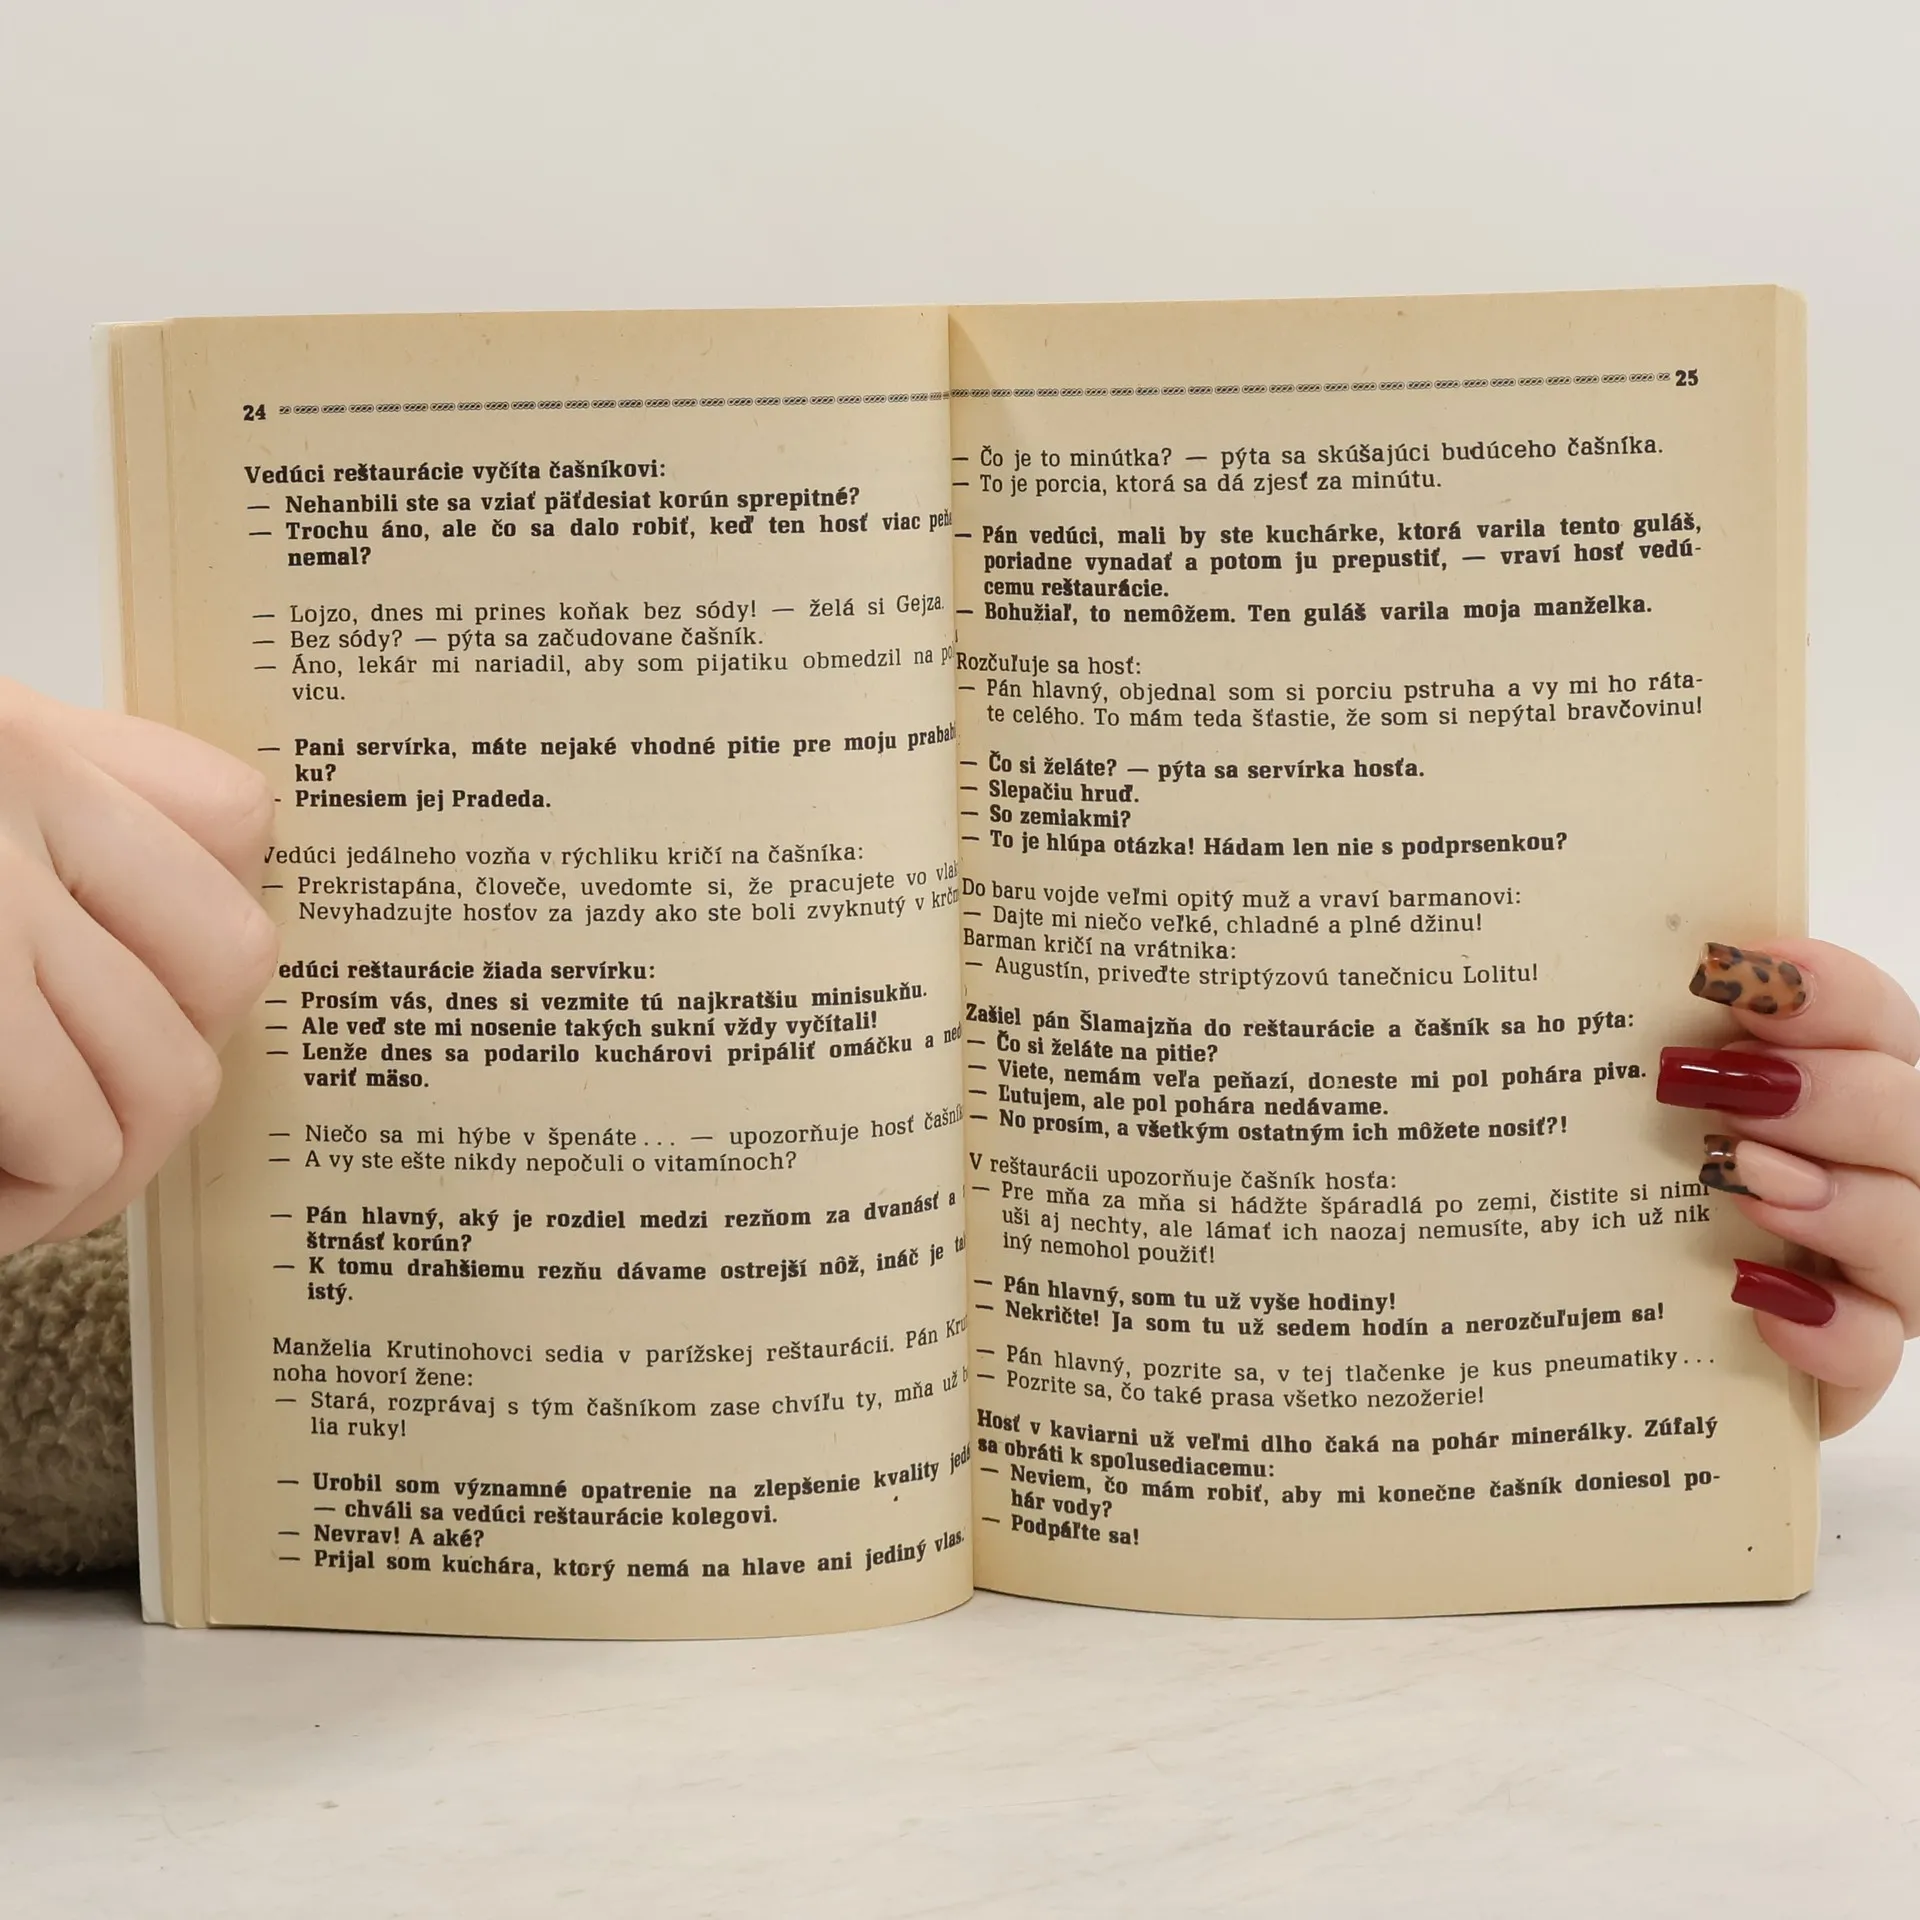 24
Vedúci reštaurácie vyčíta čašníkovi:
— Nehanbili ste sa vziať päťdesiat korún sprepitné?
— Trochu áno, ale čo sa dalo robiť, keď ten hosť viac
nemal?
— Lojzo, dnes mi prines koňak bez sódy! — želá si Gejza.
— Bez sódy? — pýta sa začudovane čašník.
— Áno, lekár mi nariadil, aby som pijatiku obmedzil na
vicu.
— Pani servírka, máte nejaké vhodné pitie pre moju
ku?
- Prinesiem jej Pradeda.
Vedúci jedálneho vozňa v rýchliku kričí na čašníka:
— Prekristapána, človeče, uvedomte si, že pracujete vo
Nevyhadzujte hosťov za jazdy ako ste boli zvyknutý v
edúci reštaurácie žiada servírku:
— Prosím vás, dnes si vezmite tú najkratšiu minisukňu.
— Ale veď ste mi nosenie takých sukní vždy vyčítali!
— Lenže dnes sa podarilo kuchárovi pripáliť omáčku a
variť mäso.
— Niečo sa mi hýbe v špenáte... — upozorňuje hosť
— A vy ste ešte nikdy nepočuli o vitamínoch?
— Pán hlavný, aký je rozdiel medzi rezňom za dvanásť a
štrnásť korún?
— K tomu drahšiemu rezňu dávame ostrejší nôž, ináč je
istý.
Manželia Krutinohovci sedia v parížskej reštaurácii. Pán
noha hovorí žene:
— Stará, rozprávaj s tým čašníkom zase chvíľu ty, mňa už
lia ruky!
— Urobil som významné opatrenie na zlepšenie kvality
— chváli sa vedúci reštaurácie kolegovi.
— Nevrav! A aké?
— Prijal som kuchára, ktorý nemá na hlave ani jediný vlas.
25
— Čo je to minútka? — pýta sa skúšajúci budúceho čašníka.
— To je porcia, ktorá sa dá zjesť za minútu.
— Pán vedúci, mali by ste kuchárke, ktorá varila tento guláš,
poriadne vynadať a potom ju prepustiť, — vraví hosť vedú-
cemu reštaurácie.
— Bohužiaľ, to nemôžem. Ten guláš varila moja manželka.
Rozčuľuje sa hosť:
— Pán hlavný, objednal som si porciu pstruha a vy mi ho ráta-
te celého. To mám teda šťastie, že som si nepýtal bravčovinu!
— Čo si želáte? — pýta sa servírka hosťa.
— Slepačiu hruď.
— So zemiakmi?
— To je hlúpa otázka! Hádam len nie s podprsenkou?
Do baru vojde veľmi opitý muž a vraví barmanovi:
— Dajte mi niečo veľké, chladné a plné džinu!
Barman kričí na vrátnika:
— Augustín, priveďte striptýzovú tanečnicu Lolitu!
Zašiel pán Šlamajzňa do reštaurácie a čašník sa ho pýta:
— Čo si želáte na pitie?
— Viete, nemám veľa peňazí, doneste mi pol pohára piva.
— Ľutujem, ale pol pohára nedávame.
— No prosím, a všetkým ostatným ich môžete nosiť?!
V reštaurácii upozorňuje čašník hosťa:
— Pre mňa za mňa si hádžte špáradlá po zemi, čistite si nimi
uši aj nechty, ale lámať ich naozaj nemusíte, aby ich už nik
iný nemohol použiť!
— Pán hlavný, som tu už vyše hodiny!
— Nekričte! Ja som tu už sedem hodín a nerozčuľujem sa!
— Pán hlavný, pozrite sa, v tej tlačenke je kus pneumatiky...
— Pozrite sa, čo také prasa všetko nezožerie!
Hosť v kaviarni už veľmi dlho čaká na pohár minerálky. Zúfalý
sa obráti k spolusediacemu:
— Neviem, čo mám robiť, aby mi konečne čašník doniesol po-
hár vody?
— Podpáľte sa!